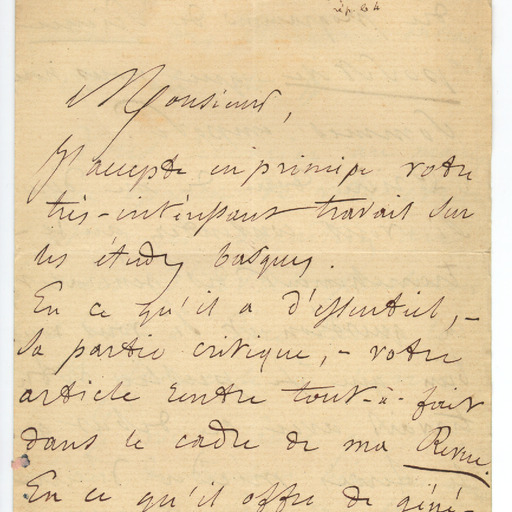 rép. 64
Monsieur,
J'accepte en principe votre
très-intéressant travail sur
les études basques.
En ce qu'il a d'essentiel, -
sa partie critique, - votre
article rentre tout-à-fait
dans le cadre de ma Revue.
En ce qu'il offre de géné-